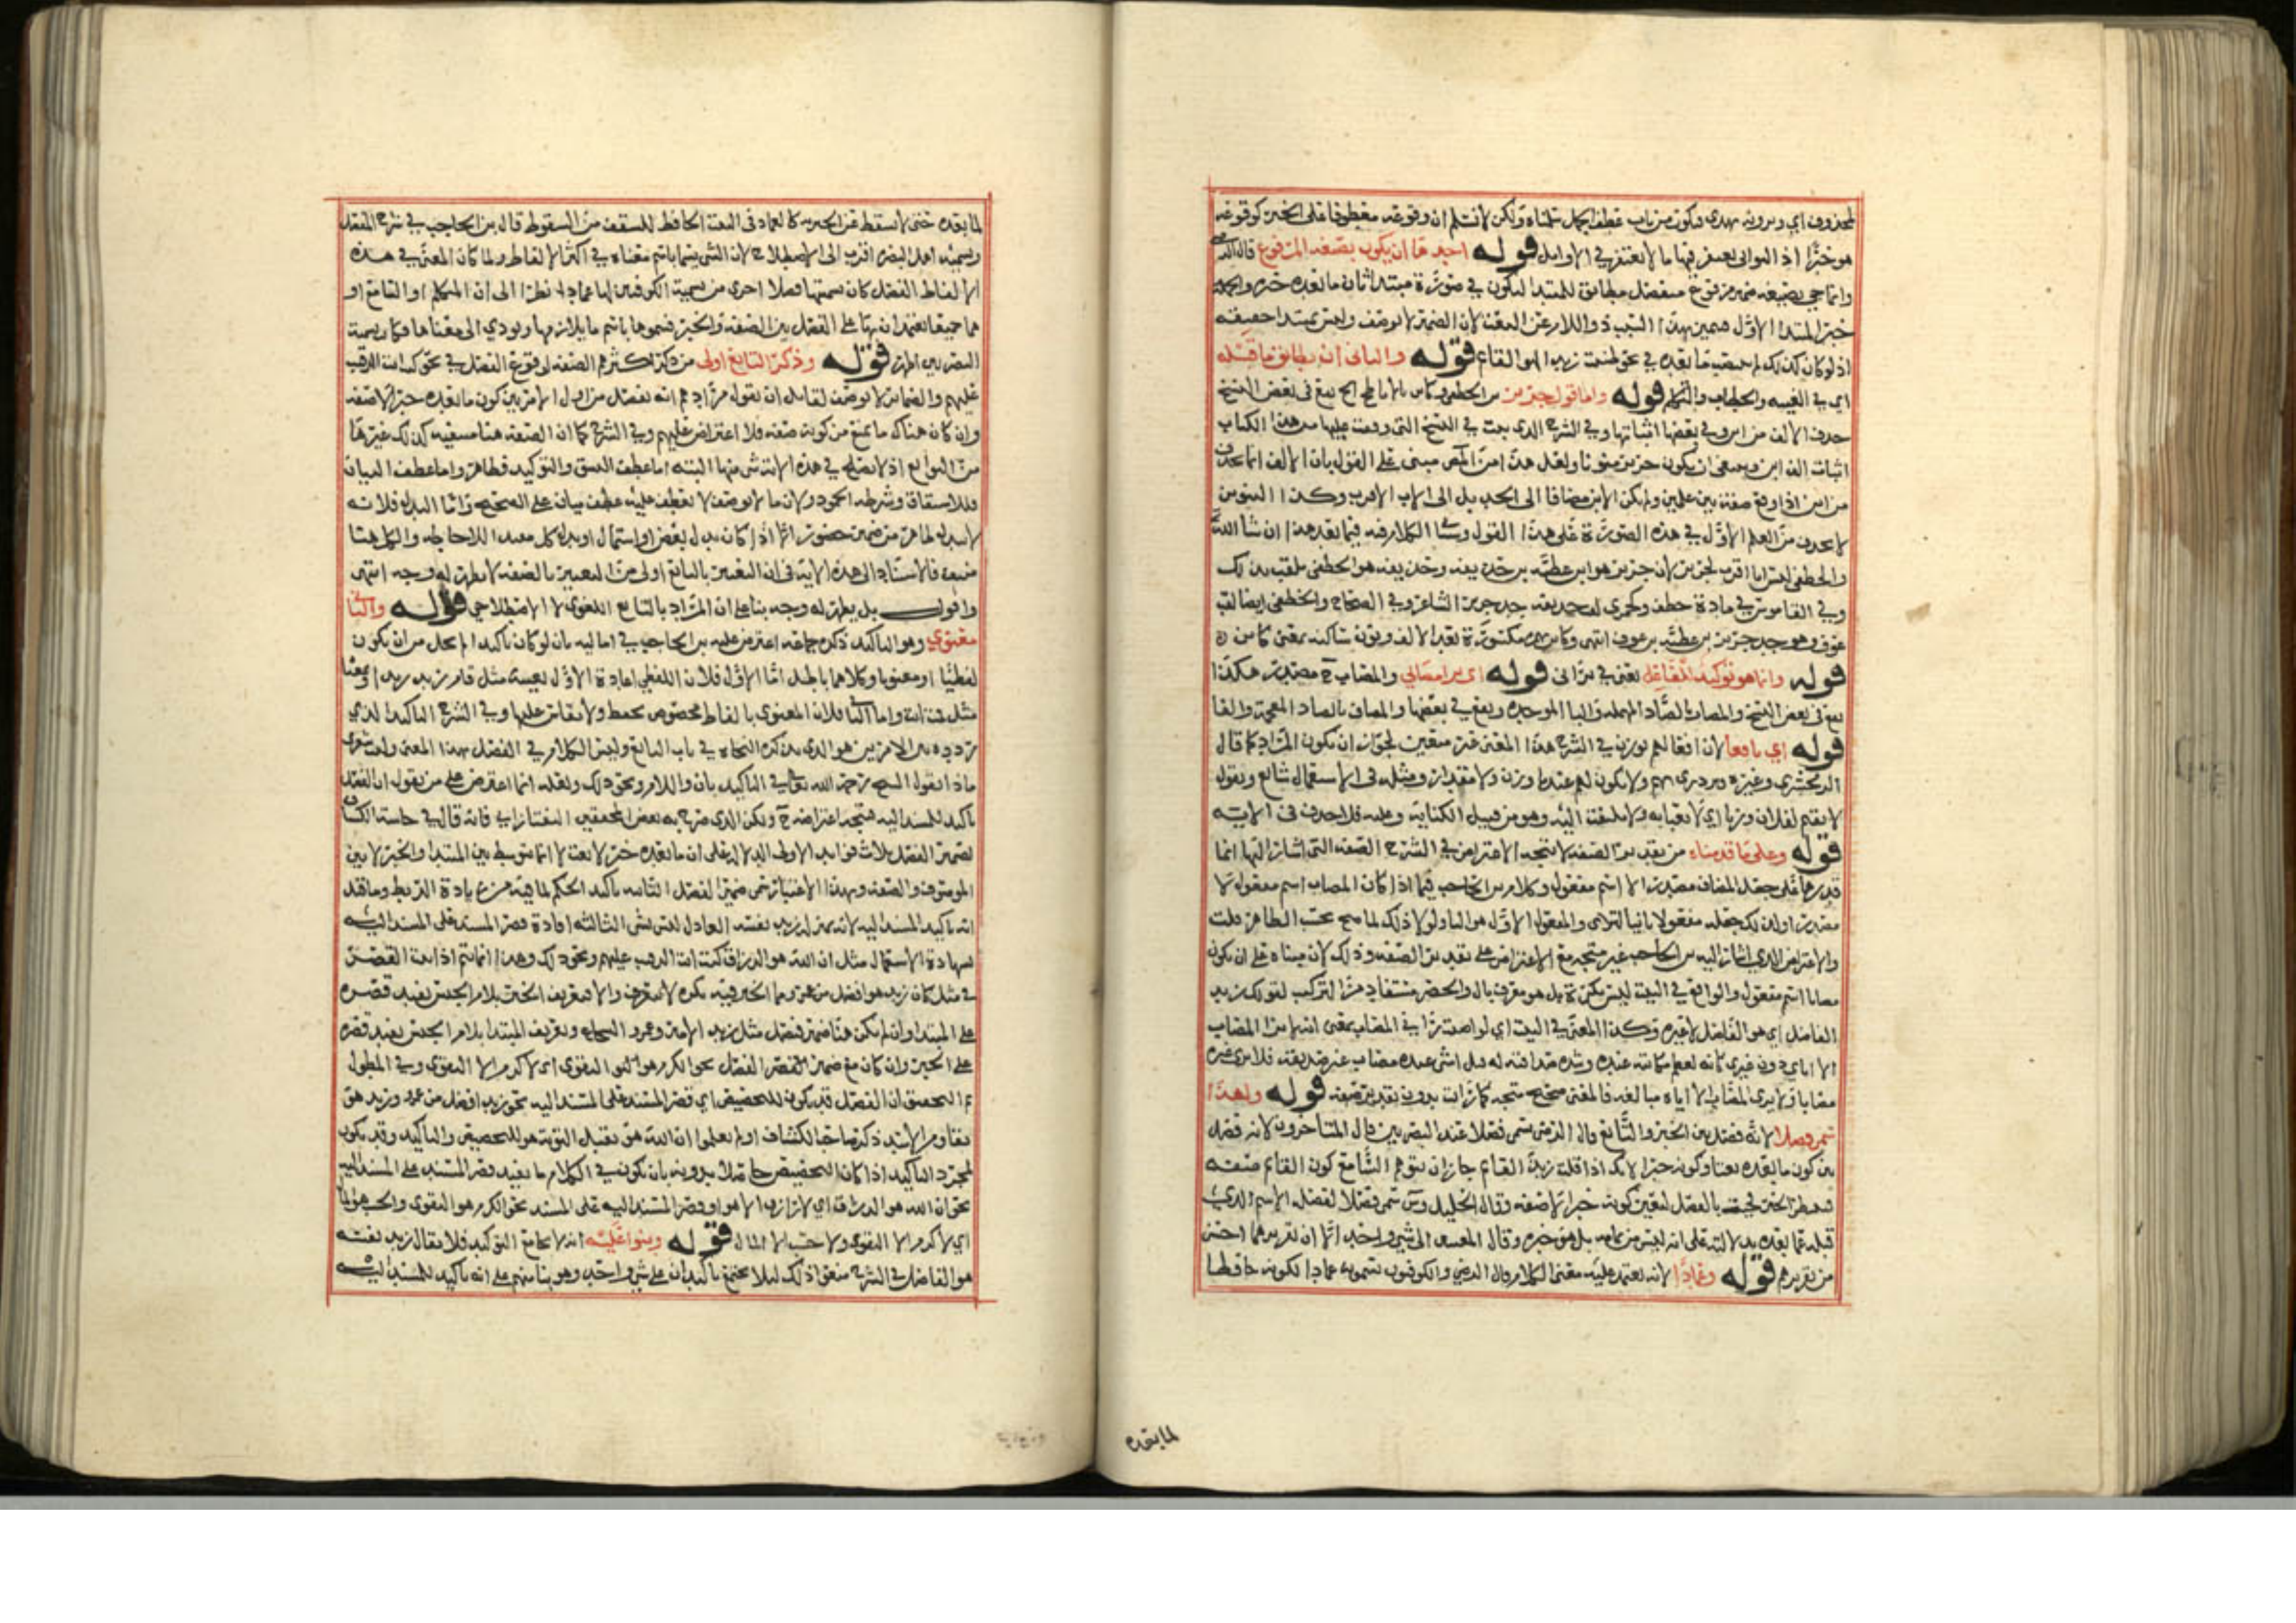 لمحذوف اي ويرونه يهدى ويكون من باب عطف الجمل سلمناه ولكن لا نسلم ان وقوعه معطوفا على الخبر كوقوعه
هو خبرا اذ الثوانى يغتفر فيها ما لا يغتفر في الاوايل قوله احدها ان يكون بصيغه المرفوع قال
وانما جي بصيغه ضمير مرفوع منفصل مطابق للمبتدا ليكون في صورة مبتدا ثان ما بعده خبره والجملة
خبر المبتدا الاول فيتميز بهذا السبب ذو اللام عن النعت لان الضمير لا يوصف وليس بمبتدا حقيقه
اذ لو كان كذلك لم ينتصب ما بعده في نحو ظننت زيدا هو القائم قوله والثانى ان يطابق ما قبله
اي في الغيبه والخطاب والتكلم قوله واما قول جرير بن الخطفى وكاين بالاباطح الخ يقع في بعض النسخ
حذف الالف من ابن وفي بعضها اثباتها وفي الشرح الذى يحث في النسخ التى وقفت عليها من هذا الكتاب
اثبات الف ابن وينبغى ان يكون جرير منونا ولعل هذا من المص مبنى على القول بان الالف انما تحذف
من ابن اذا وقع صفة بين علمين ولم يكن الابن مضافا الى الجد بل الى الاب الاقرب وكذا التنوين
لا يحذف من العلم الاول في هذه الصورة على هذا القول وسيأتى الكلام فيه فيما بعد هذا ان شا الله
والخطفى ليس ابا اقرب لجرير لان جرير هو ابن عطيه بن حذيفه وحذيفه هو الخطفى تلقب بذلك
وفي القاموس في مادة خطف وكجمزى لقب حذيفه جد جرير الشاعر وفي الصحاح والخطفى ايضا لقب
عوف وهو جد جرير بن عطيه بن عوف انتهى وكاين بهمزة مكسورة بعد الالف ونون ساكنه بمعنى كاين
قوله وانما هو توكيد للفاعل يعنى في يرانى قوله اى يرا مصابي والمصاب ح مصدر هكذا
يقع في بعض النسخ والمصاب بالصاد المهمله والبا الموحده ويقع في بعضها والمضاف بالضاد المعجمه والفا
قوله اي نافعا لان افعالهم توزن في الشرح هذا المعنى غير متعين لجواز ان يكون المراد كما قال
الزمخشري وغيره ولا يكون لهم عندنا وزن ولا مقدار ومثله في الاستعمال شائع ويقول
لا نقيم لفلان وزنا اي لا نعبا به ولا نلتفت اليه وهو من قبيل الكنايه وعليه فلا حذف في الايه
قوله وعلى ما قدمناه من تقدير الصفه لا يتجه الاعتراض في الشرح الصفه التى اشار اليها انما
قدرها على جعل المضاف مصدرا لا اسم مفعول وكلام ابن الحاجب فيما اذا كان المصاب اسم مفعول لا
مصدرا ولذلك جعله مفعولا ثانيا لترانى والمفعول الاول هو اليا ولولا ذلك لما صح بحسب الظاهر قلت
والاعتراض الذي اشار اليه ابن الحاجب غير متجه مع الاعتراض على تقدير الصفه وذلك لان مبناه على ان يكون
مصابا اسم مفعول والواقع في البيت ليس نكرة بل هو معرف بال والحصر مستفاد من التركيب كقولك زيد
الفاضل اي هو الفاضل لا غيره وكذا المعنى في البيت اي لو اصبت يرا في المصاب بمعنى انه ما يرا المصاب
الا اياي دون غيري كانه لعظم مكانته عنده وشدة صداقته له فلا يرى غيره
مصابا ولا يرى المصاب الا اياه مبالغه فالمعنى صحيح متجه كما رايت بدون تقدير صفه قوله ولهذا
سمي فصلا لانه فصل بين الخبر والتابع قال الرضى سمى فصلا عند البصريين قال المتاخرون لانه فصل
بين كون ما بعده نعتا وكونه خبرا لانك اذا قلت زيد القائم جاز ان يتوهم السامع كون القائم صفه
فينتظر الخبر فجيت بالفصل لتعين كونه خبرا لا صفه وقال الخليل وس سمى فصلا لفصله الاسم الذي
قبله عما بعده بدلالته على انه ليس من تمامه بل هو خبره وقال المعنى الى شي واحد الا ان تقديرهما احسن
من تقديرهم قوله وعمادا لانه يعتمد عليه معنى الكلام قال الرضي والكوفيون يسمونه عمادا لكونه حافظا
لما بعده
لما بعده حتى لا يسقط عن الخبريه كالعماد في البيت الحافظ للسقف من السقوط قال بن الحاجب في شرح المفصل
وتسميه اهل البصره اقرب الى الاصطلاح لان الشى يسما باسم معناه في اكثر الالفاظ ولما كان المعنى في هذه
الالفاظ الفصل كان تسميتها فصلا احرى من تسميه الكوفيين لها عمادا نظرا الى ان المتكلم او السامع او
هما جميعا يعتمدان بها على الفصل بين الصفه والخبر فسموها باسم ما يلازمها ويودي الى معناها فكان تسميه
البصريين اظهر قوله وذكر التابع اولى من ذكر اكثرهم الصفه لوقوع الفصل في نحو كنت انت الرقيب
عليهم والضماير لا توصف لقايل ان يقول مرادهم انه يفصل من اول الامر بين كون ما بعده خبرا لا صفه
وان كان هناك ما يمنع من كونه صفه فلا اعتراض عليهم وفي الشرح كما ان الصفه هنا منتفيه كذلك غيرها
من التوابع اذ لا يصلح في هذه الايه شى منها البته اما عطف النسق والتوكيد فظاهر واما عطف البيان
فللاشتقاق وشرطه الجمود ولان ما لا يوصف لا يعطف عليه عطف بيان على الصحيح واما البدل فلانه
لا يبدل ظاهر من ضمير حضور الا اذا كان بدل بعض او اشتمال او بدل كل مفيدا للاحاطه والكل هنا
منتف فالاستناد الى هذه الاية في ان التعبير بالتابع اولى من التعبير بالصفه لا يظهر له وجه انتهى
واقول بل يظهر له وجه بناء على ان المراد بالتابع اللغوى لا الاصطلاحى قوله والثانى
معنوي وهو التاكيد ذكره جماعه اعترض عليه بن الحاجب في اماليه بان لو كان تاكيدا لم يخل من ان يكون
لفظيا او معنويا وكلاهما باطل اما الاول فلان اللفظي اعادة الاول بعينه مثل قام زيد زيد او بمعناه
مثل قمت انت واما الثانى فلان المعنوى بالفاظ مخصوصه تحفظ ولا يقاس عليها وفي الشرح التاكيد الذي
تردده بين الامرين هو الذى يذكره النحاه في باب التابع وليس الكلام في الفصل بهذا المعنى وليت شعرى
ماذا يقول الشيخ رحمه الله تعالى في التاكيد بان واللام ونحو ذلك ولعله انما اعترض على من يقول ان الفصل
تاكيد للمسند اليه فيتجه اعتراضه ح ولكن الذى صرح به بعض المحققين التفتازاني فانه قال في حاشية الكشاف
لضمير الفصل ثلاث فوايد الاولى الدلالة على ان ما بعده خبر لا نعت لانه انما يتوسط بين المبتدا والخبر لا بين
الموصوف والصفه وبهذا الاعتبار سمى ضمير الفصل الثانيه تاكيد الحكم لما فيه من زيادة الربط وما قيل
انه تاكيد المسند اليه لانه بمنزلة زيد نفسه العادل ليس بشى الثالثه افادة قصر المسند على المسند اليه
بشهادة الاستعمال مثل ان الله هو الرزاق كنت انت الرقيب عليهم ونحو ذلك وهذا انما يتم اذا ثبت القصر
في مثل كان زيد هو افضل من عمرو مما الخبر فيه نكره لا معرفه والا فتعريف الخبر بلام الجنس يفيد قصره
على المبتدا وان لم يكن هناك ضمير فصل مثل زيد الامير وعمرو الشجاع وتعريف المبتدا بلام الجنس يفيد قصره
على الخبر وان كان مع ضمير الفصل نحو الكرم هو التقوى اى لا كرم الا التقوى وفي المطول
ثم التحقيق ان الفصل قد يكون للتخصيص اي قصر المسند على المسند اليه نحو زيد هو افضل من عمرو وزيد هو
يقاوم الاسد ذكر صاحب الكشاف اولم يعلموا ان الله هو يقبل التوبه هو للتخصيص والتاكيد وقد يكون
لمجرد التاكيد اذا كان التخصيص حاصلا بدونه بان يكون في الكلام ما يفيد قصر المسند على المسند اليه
نحو ان الله هو الرزاق اي لا رازق الا هو او قصر المسند اليه على المسند نحو الكرم هو التقوى والحسب هو المال
اي لا كرم الا التقوى ولا حسب الا المال قوله وبنوا عليه انه لا يجامع التوكيد فلا يقال زيد نفسه
هو الفاضل في الشرح منعوا ذلك ليلا يجتمع تاكيدان على شى واحد وهو بنا منهم على انه تاكيد للمسند اليه